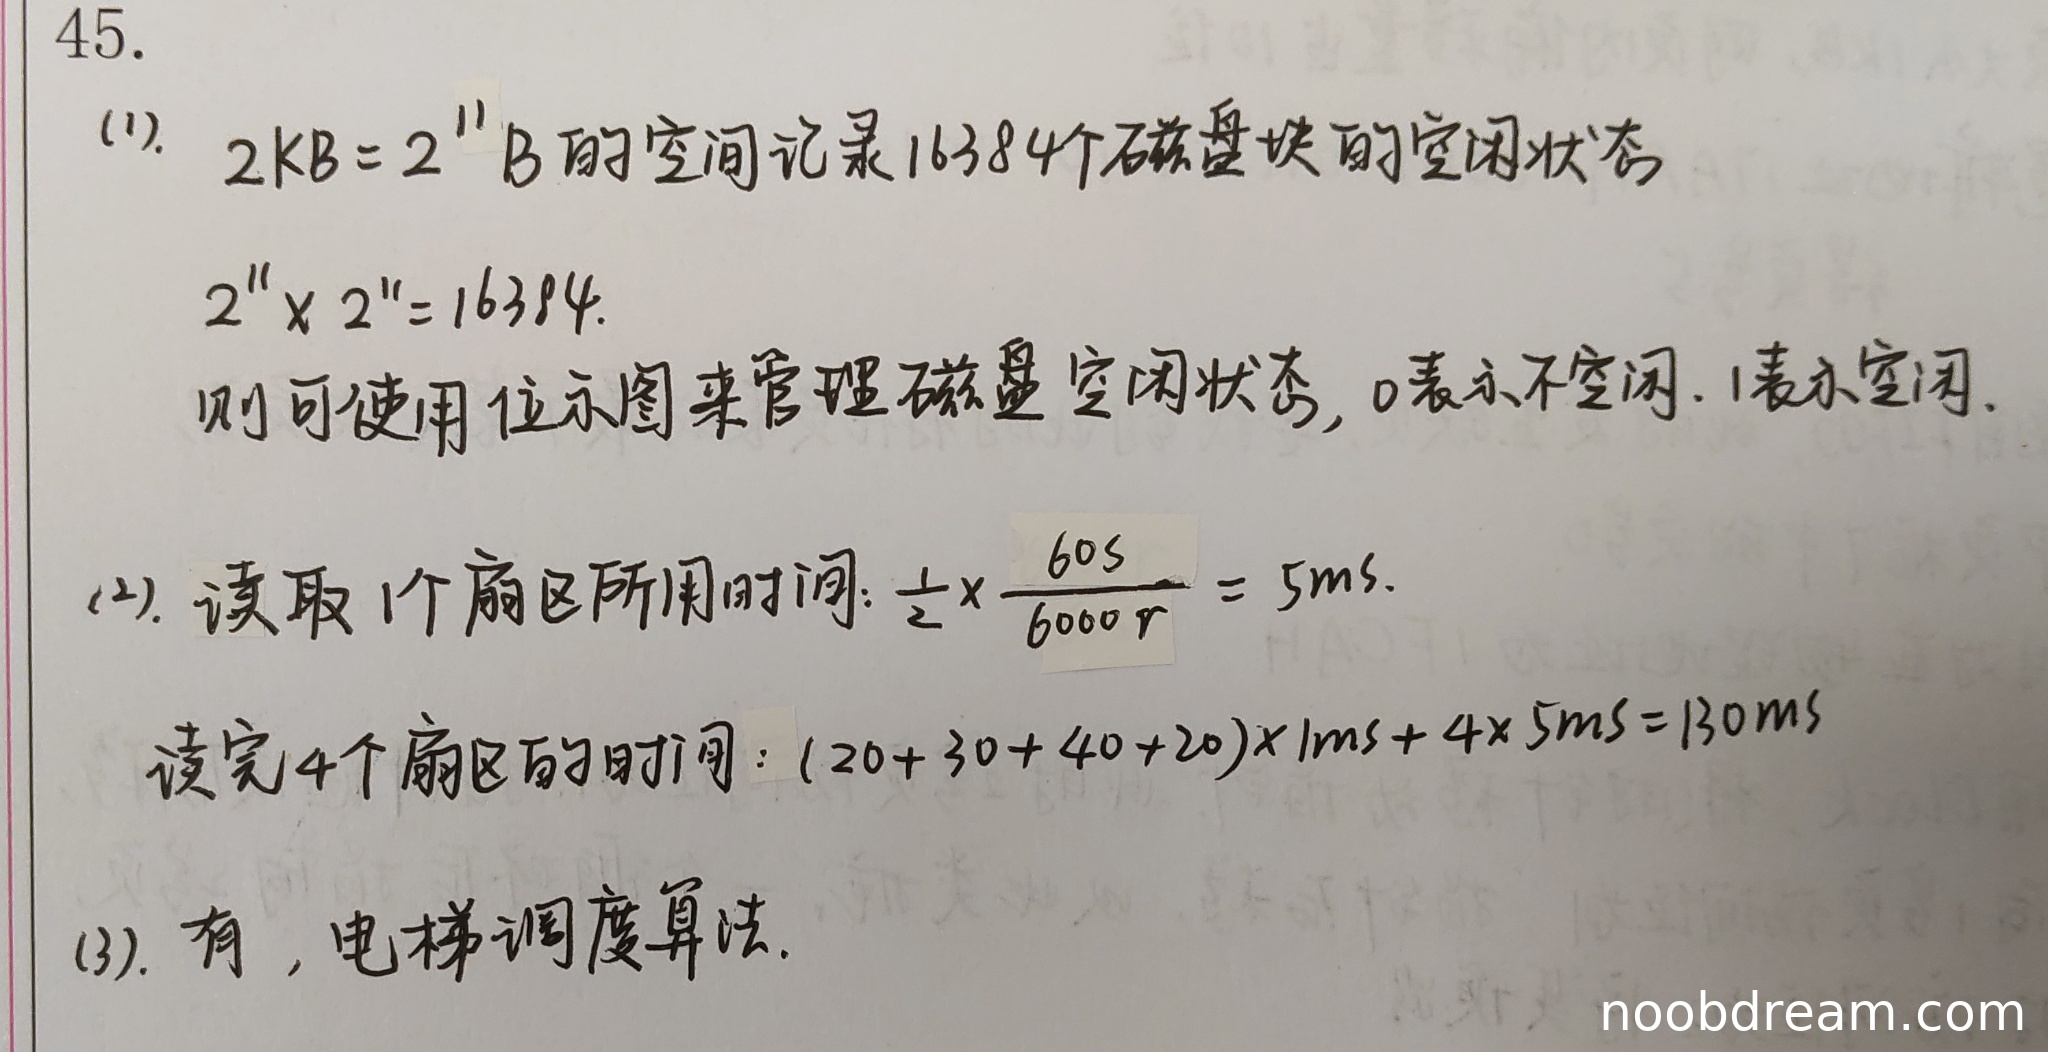 45.
(1). 2KB=2¹¹B的空间记录16384个磁盘块的空闲状态
2¹¹×2¹¹=16384.
则可使用位示图来管理磁盘空闲状态,0表示不空闲.1表示空闲.
(2).读取1个扇区所用时间:1/2×60s/6000r=5ms.
读完4个扇区的时间:(20+30+40+20)×1ms+4×5ms=130ms
(3).有,电梯调度算法.
noobdream.com